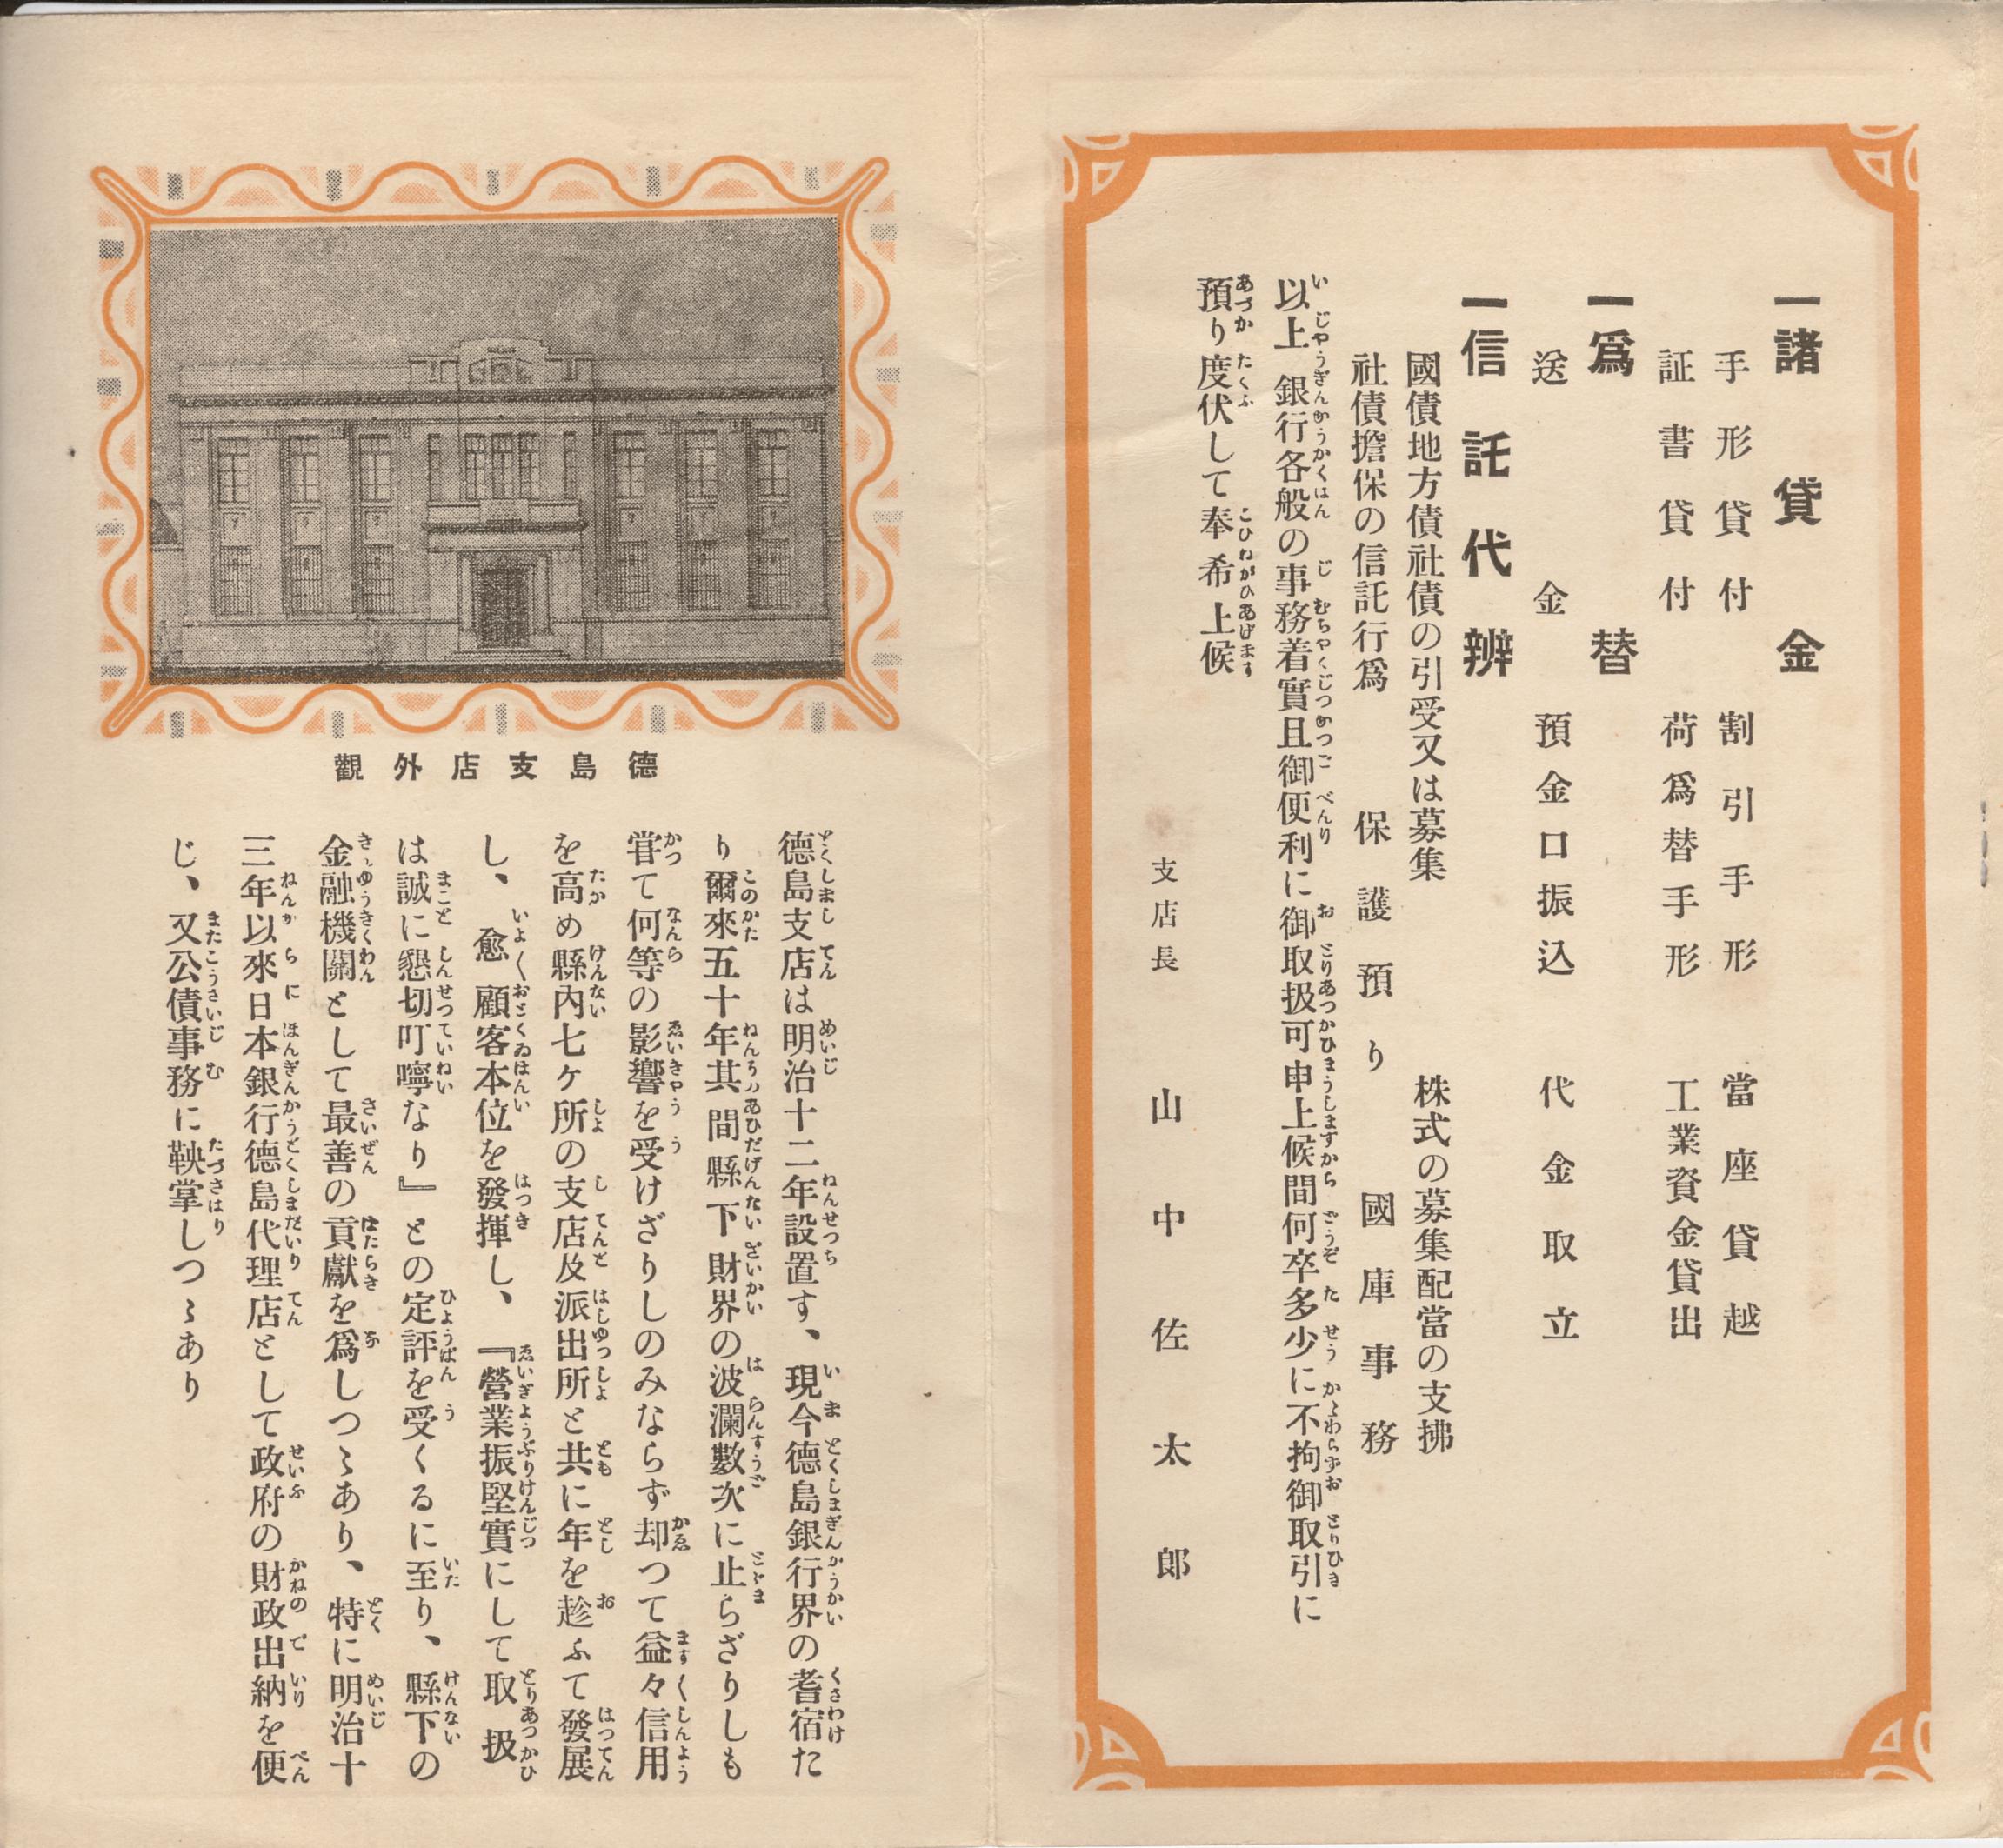 一諸貸金
手形貸付　割引手形　當座貸越
証書貸付　荷爲替手形　工業資金貸出
一爲替
送金　預金口振込　代金取立
一信託代辨
國債地方債社債の引受又は募集　株式の募集配當の支拂
社債擔保の信託行爲　保護預り　國庫事務
以上銀行各般の事務着實且御便利に御取扱可申上候間何卒多少に不拘御取引に
預り度伏して奉希上候
支店長　山中佐太郎
德島支店外觀
德島支店は明治十二年設置す、現今德島銀行界の耆宿た
り爾來五十年其間縣下財界の波瀾數次に止らざりしも
甞て何等の影響を受けざりしのみならず却つて益々信用
を高め縣內七ケ所の支店及派出所と共に年を趁ふて發展
し、愈顧客本位を發揮し、『營業振堅實にして取扱
は誠に懇切叮嚀なり』との定評を受くるに至り、縣下の
金融機關として最善の貢獻を爲しつゝあり、特に明治十
三年以來日本銀行德島代理店として政府の財政出納を便
じ、又公債事務に鞅掌しつゝあり